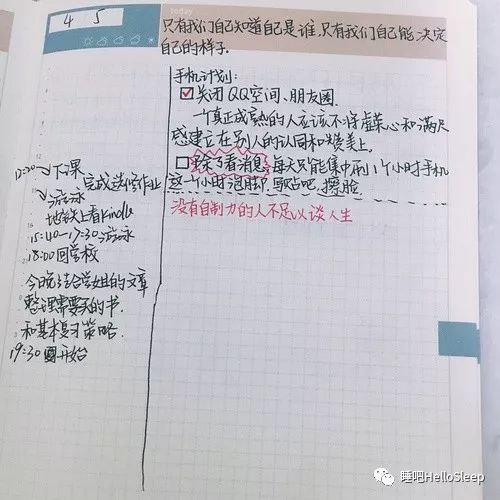 4 5
today
只有我们自己知道自己是谁,只有我们自己能决定
自己的样子.
手机计划:
☑关闭QQ空间、朋友圈.
一个真正成熟的人应该不将虚荣心和满足
感建立在别人的认同和赞美上.
☐除了看消息,每天只能集中刷1个小时手机
这一个小时泡脚,
擦脸
没有自制力的人不足以谈人生
下课
完成选修作业
游泳
地铁上看kindle
15:40-17:30游泳
18:00回学校
今晚结合学姐的文章
整理需要买的书.
和基本复习策略.
19:30 开始
睡吧HelloSleep